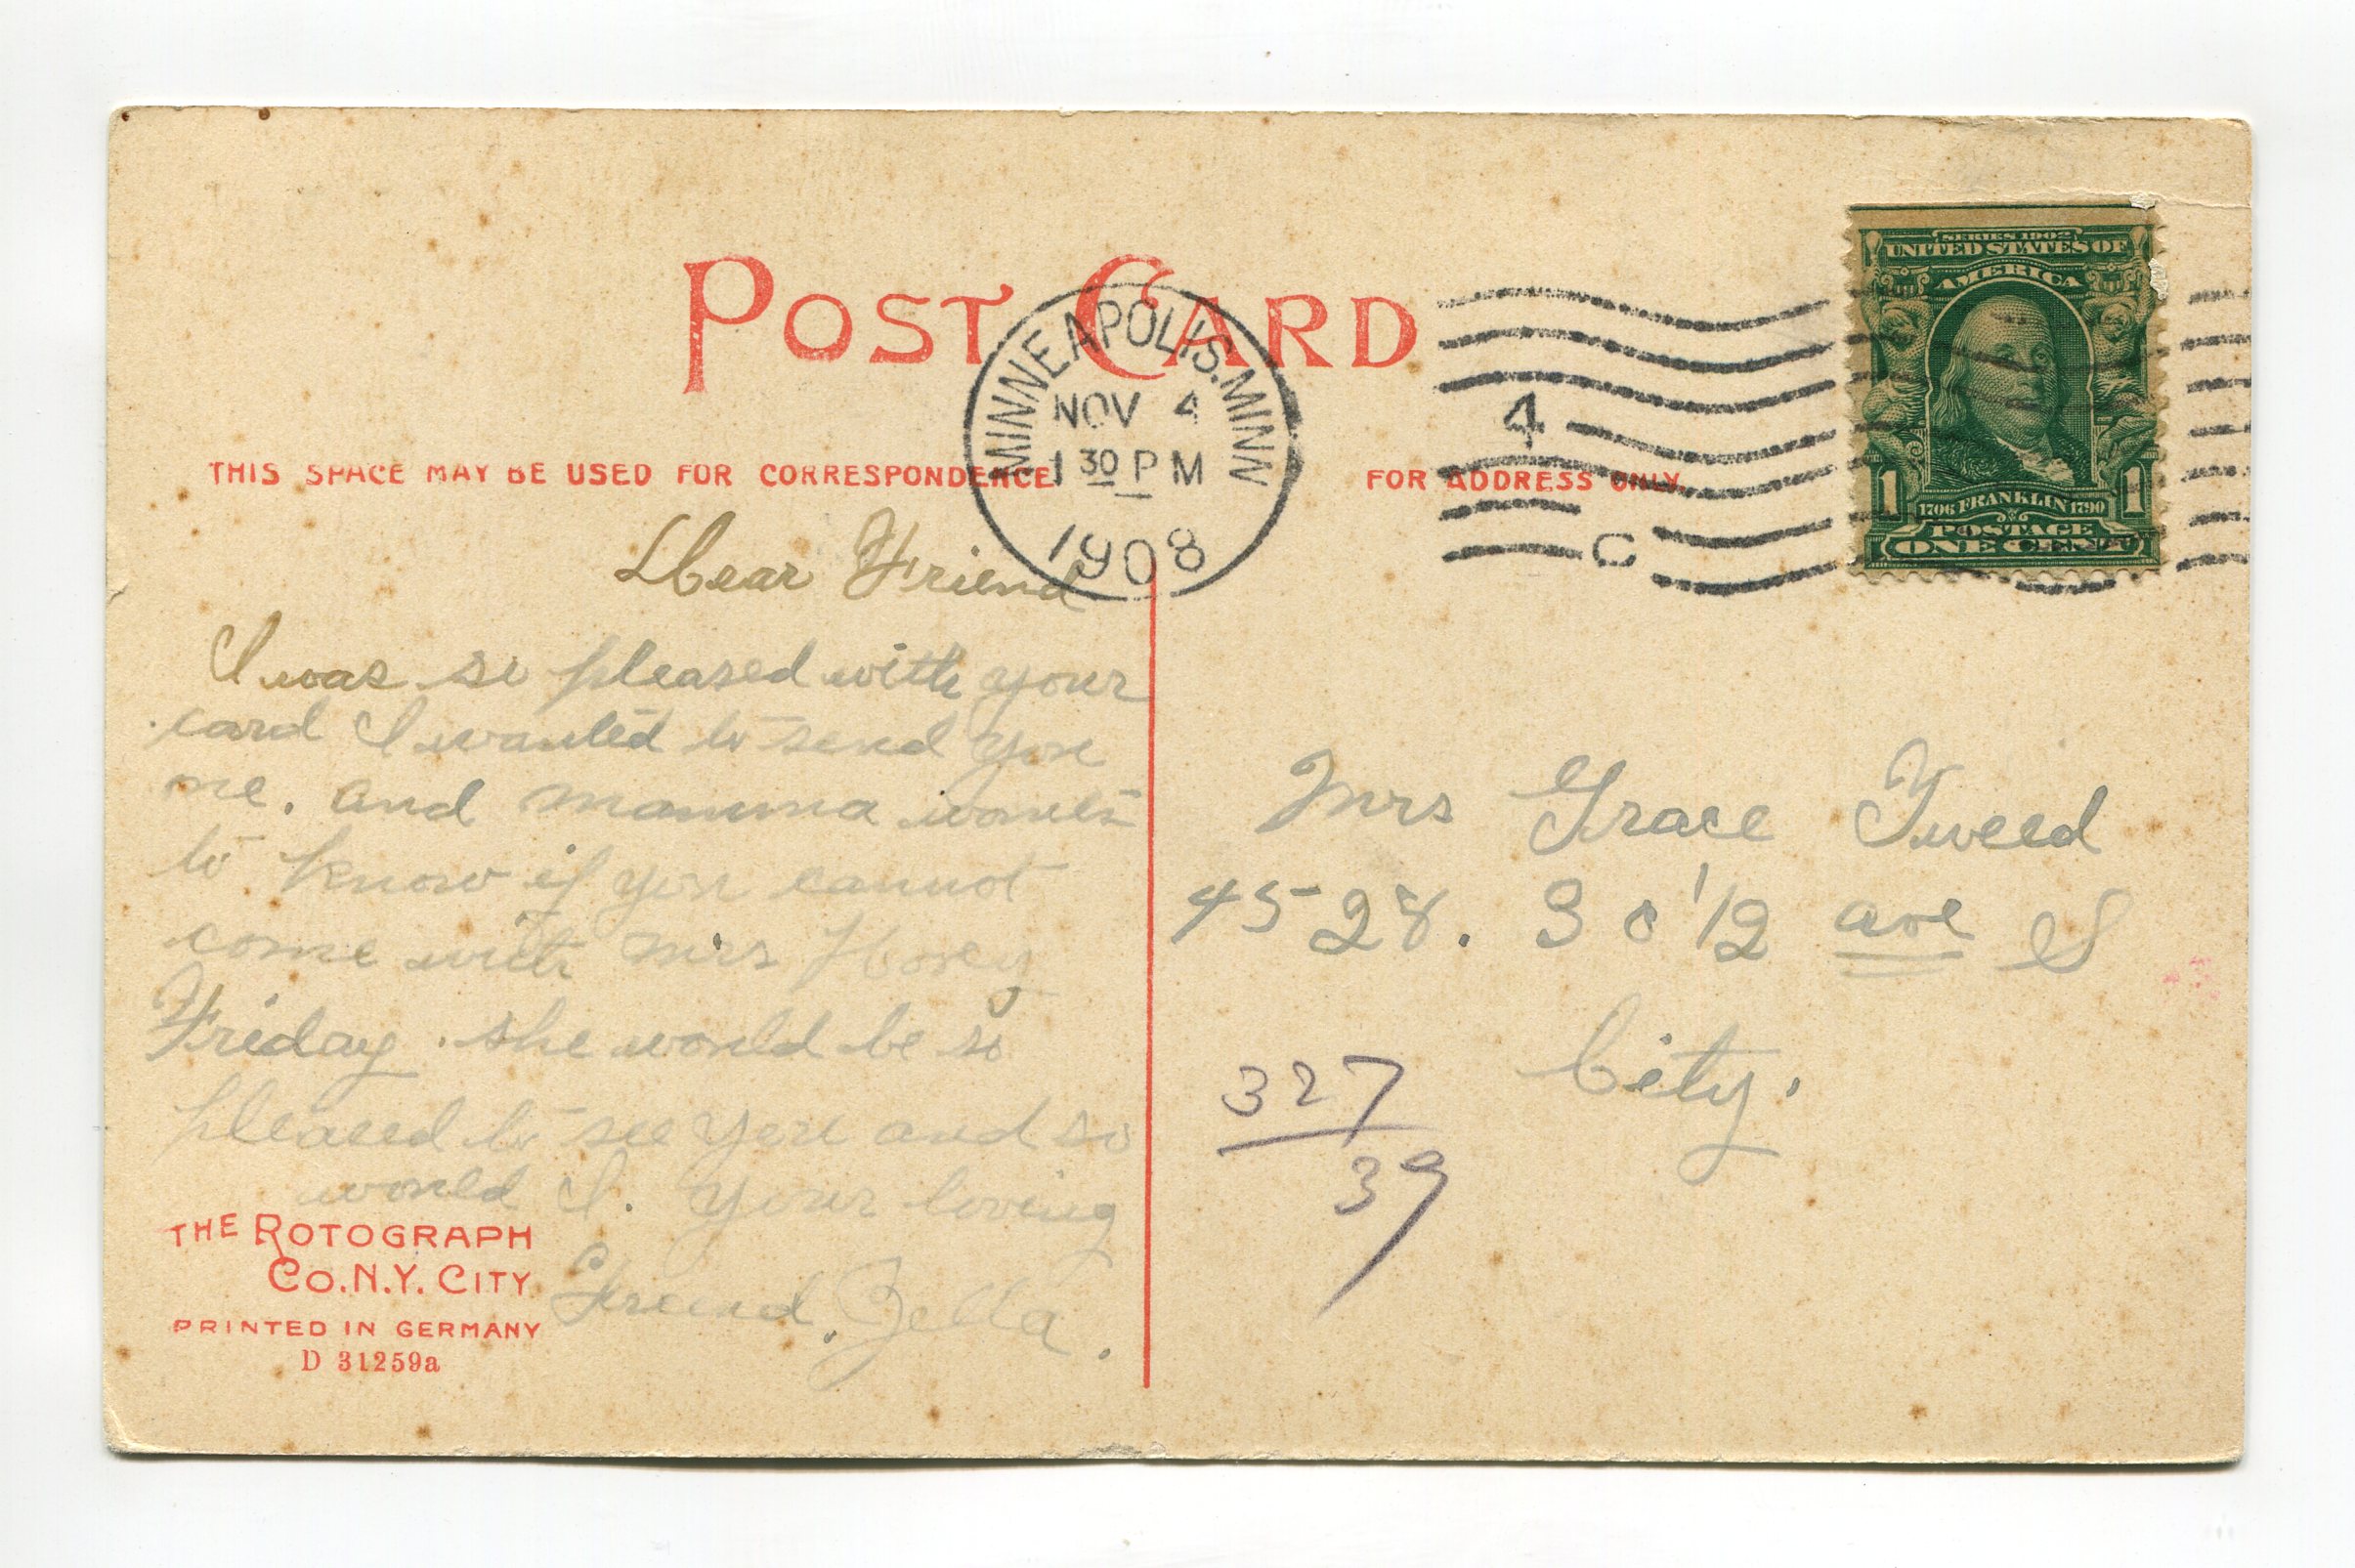 POST CARD
MINNEAPOLIS. MINN
NOV 4
1 30 P M
1908
4
C
SERIES 1902
UNITED STATES OF
AMERICA
1 1706 FRANKLIN 1790 1
POSTAGE
ONE CENT
THIS SPACE MAY BE USED FOR CORRESPONDENCE
FOR ADDRESS ONLY.
Dear Friend
I was so pleased with your
card I wanted to send you
one. and mamma wants
to know if you cannot
come with Mrs Hovey
Friday. she would be so
pleased to see you and so
would I. Your loving
Friend. Zella.
Mrs Grace Tweed
4528. 30 1/2 ave S
City.
327
39
THE ROTOGRAPH
CO. N.Y. CITY
PRINTED IN GERMANY
D 31259a